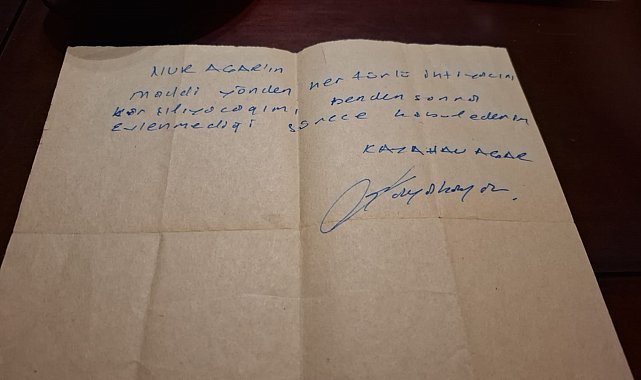 NUR AGAR'ın her türlü ihtiyacını
maddi yönden benden sonra
karşılıyacağımı,
evlenmediği sürece kabul ederim
KAYAHAN AGAR